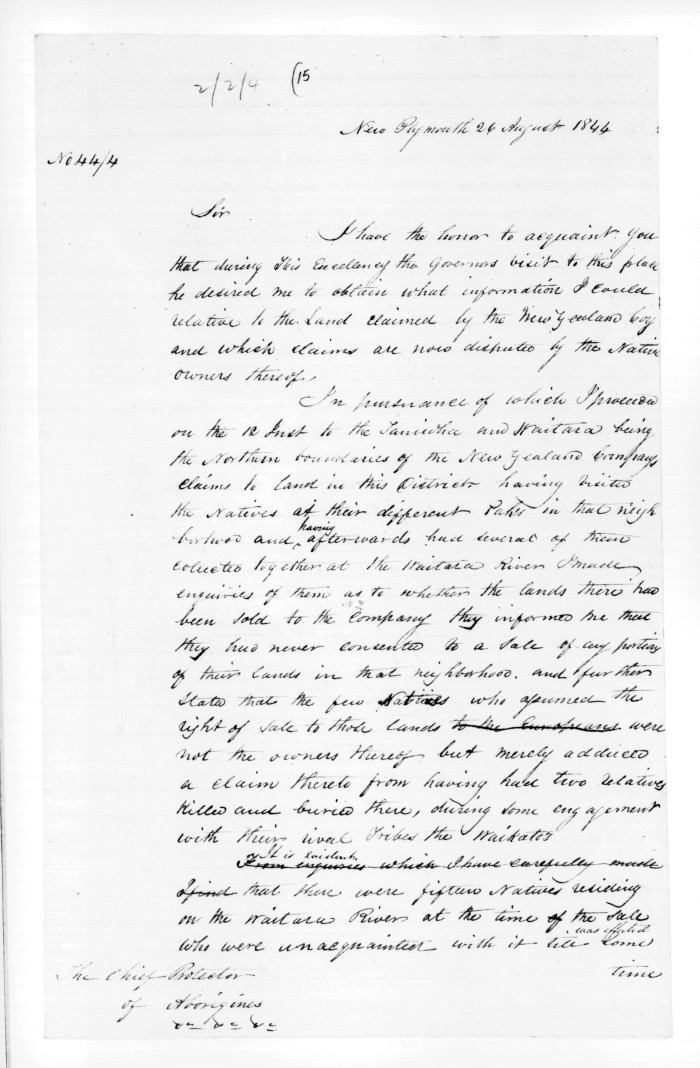 2/2/4 (15
New Plymouth 26 August 1844
No 44/4
Sir
I have the honor to acquaint you
that during His Excellency the Governors visit to this place
he desired me to obtain what information I could
relative to the Land claimed by the New Zealand Coy
and which claims are now disputed by the Native
owners thereof.
In pursuance of which I proceeded
on the 12 Inst to the Taniwha and Waitara being
the Northern boundaries of the New Zealand Companys
claims to land in this District having visited
the Natives at their different Pahs in that neigh
borhood and having afterwards had several of them
collected together at the Waitara River I made
enquiries of them as to whether the lands there had
been sold to the N.Z. Company they informed me that
they had never consented to a Sale of any portion
of their lands in that neighborhood. and further
State that the few Natives who assumed the
right of Sale to those lands to the Europeans were
not the owners thereof but merely adduced
a claim thereto from having had two relatives
Killed and buried there, during some engagement
with their rival Tribes the Waikatos
It is evident
From enquiries which I have carefully made
I find that there were fifteen Natives residing
on the Waitara River at the time of the Sale
who were unacquainted with it till some
was effected
time
The Chief Protector
of Aborigines